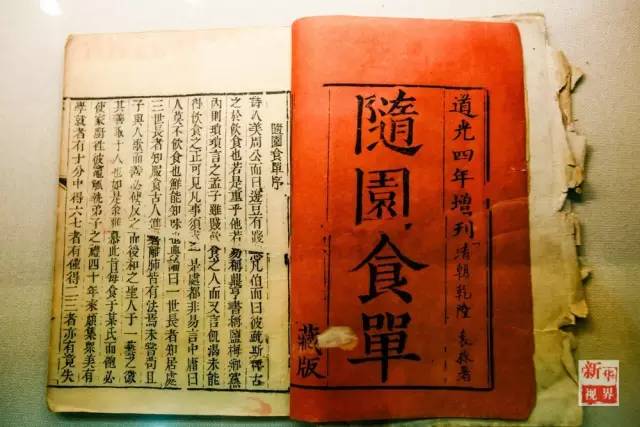 道光四年增刊
清朝乾隆 袁枚著
隨園食單
藏版
隨園食單序
詩人美周公而曰籩豆有踐惡凡伯而曰彼疏斯稗古
之於飲食也若是重乎他若易稱鼎亨書稱鹽梅鄉黨
內則瑣瑣言之孟子雖賤飲食之人而又言飢渴未能
得飲食之正可見凡事須求一是處都非易言中庸曰
人莫不飲食也鮮能知味也典論曰一世長者知居處
三世長者知服食古人進鬐離肺皆有法焉未嘗苟且
子與人歌而善必使反之而後和之聖人于一藝之微
其善取于人也如是余雅慕此旨每食于某氏而飽必
使家廚往彼竈觚執弟子之禮四十年來頗集衆美有
學就者有十分中得六七者有僅得二三者亦有竟失
新华
视界